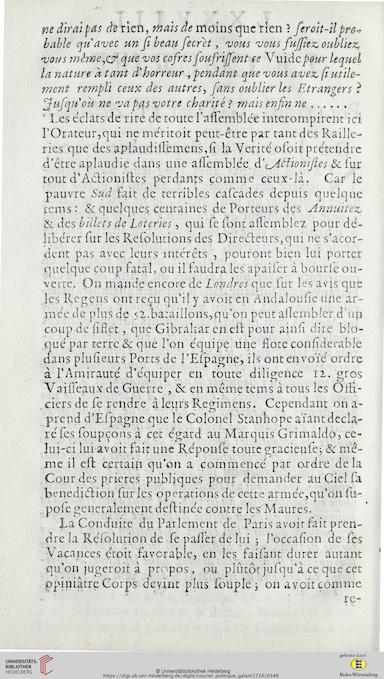 ne dirai pas de rien, mais de moins que rien ? seroit-il pro-
bable qu'avec un si beau secrèt , vous vous fussiez oubliez
vous même, & que vos cofres soufrissent ce Vuide pour lequel
la nature à tant d'horreur , pendant que vous avez si utile-
ment rempli ceux des autres, sans oublier les Etrangers ?
Jusqu'où ne va pas votre charité ? mais enfin ne ......
Les éclats de rire de toute l'assemblée interompirent ici
l'Orateur, qui ne méritoit peut-être par tant des Raille-
ries que des aplaudissemens, si la Verité osoit prétendre
d'être aplaudie dans une assemblée d'Actionistes & sur
tout d'Actionistes perdants comme ceux-là. Car le
pauvre Sud fait de terribles cascades depuis quelque
tems : & quelques centaines de Porteurs des Annuitez
& des billets de Loteries , qui se sont assemblez pour dé-
libérer sur les Resolutions des Directeurs, qui ne s'acor-
dent pas avec leurs intérêts , pouront bien lui porter
quelque coup fatal, ou il faudra les apaiser à bourse ou-
verte. On mande encore de Londres que sur les avis que
les Regens ont reçu qu'il y avoit en Andalousie une ar-
mée de plus de 52. bataillons, qu'on peut assembler d'un
coup de siflet , que Gibraltar en est pour ainsi dire blo-
qué par terre & que l'on équipe une flote considerable
dans plusieurs Ports de l'Espagne, ils ont envoïé ordre
à l'Amirauté d'équiper en toute diligence 12. gros
Vaisseaux de Guerre , & en même tems à tous les Offi-
ciers de se rendre à leurs Regimens. Cependant on a-
prend d'Espagne que le Colonel Stanhope aïant decla-
ré ses soupçons à cet égard au Marquis Grimaldo, ce-
lui-ci lui avoit fait une Réponse toute gracieuse ; & mê-
me il est certain qu'on a commencé par ordre de la
Cour des prieres publiques pour demander au Ciel sa
benediction sur les operations de cette armée, qu'on su-
pose generalement destinée contre les Maures.
La Conduite du Parlement de Paris avoit fait pren-
dre la Résolution de se passer de lui ; l'occasion de ses
Vacances étoit favorable, en les faisant durer autant
qu'on jugeroit à propos, ou plûtôt jusqu'à ce que cet
opiniâtre Corps devint plus souple ; on avoit comme
re-
UNIVERSITÄTS-
BIBLIOTHEK
HEIDELBERG
© Universitätsbibliothek Heidelberg
https://digi.ub.uni-heidelberg.de/diglit/courier_politique_galant1720/0348
gefördert durch
Baden-Württemberg